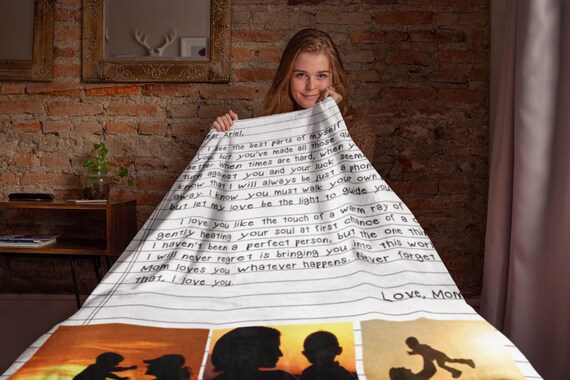 ar Ariel,
I see the best parts of myself
you, but you've made all those qu
When times are hard, when y
turn against you and your luck seem
know that I will always be just a phon
away. I know you must walk your own
but let my love be the light to guide you
I love you like the touch of a warm ray of
gently heating your soul at first chance of a
I haven't been a perfect person, but the one th
I will never regret is bringing you into this wor
Mom loves you whatever happens. Never forget
that, I love you.
Love, Mom